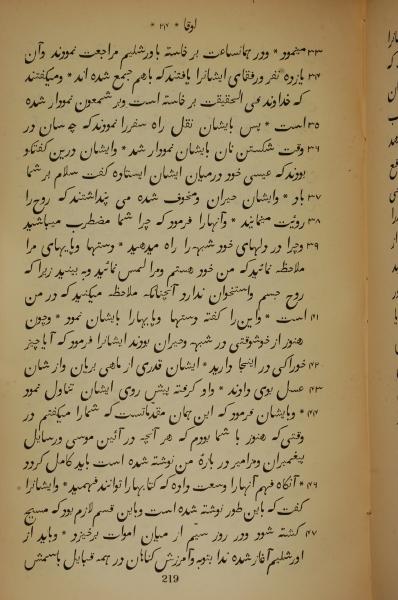 لوقا * ۲۴ *
۳۳ مینمود * ودر همانساعت بر خاسته باورشلیم مراجعت نمودند وآن
۳۴ یازده نفر ورفقای ایشانرا یافتند که باهم جمع شده اند * ومیگفتند
که خداوند فی الحقیقت بر خاسته است وبر شمعون نمودار شده
۳۵ است * پس بایشان نقل راه سفررا نمودند که چه سان در
۳۶ وقت شکستن نان بایشان نمودار شد * وایشان درین گفتگو
بودند که عیسی خود درمیان ایشان ایستاده گفت سلام بر شما
۳۷ باد * وایشان حیران ومخوف شده می پنداشتند که روحرا
۳۸ رویت مینمایند * وآنهارا فرمود که چرا شما مضطرب میباشید
۳۹ وچرا در دلهای خود شبهه را راه میدهید * ودستها وپایهای مرا
ملاحظه نمائید که من خود هستم ومرا لمس نمائید وبه بینید زیرا که
روح جسم واستخوان ندارد آنچنانکه ملاحظه میکنید که در من
۴۱ است * واین را گفته ودستها وپایهارا بایشان نمود * وچون
هنوز از خوشوقتی در شبهه وحیران بودند ایشانرا فرمود که آیا چیز
۴۲ خوراکی در اینجا دارید * ایشان قدری از ماهی بریان واز شان
۴۳ عسل بوی دادند * واو گرفته پیش روی ایشان تناول نمود
۴۴ * وبایشان فرمود که این همان مقدماتست که شمارا میگفتم در
وقتی که هنوز با شما بودم که هر آنچه در آئین موسی ورسایل
پیغمبران ومزامیر در بارهٔ من نوشته شده است باید کامل گردد
۴۶ * آنگاه فهم آنهارا وسعت داده که کتابهارا توانند فهمید * وایشانرا
گفت که باین طور نوشته شده است وباین قسم لازم بود که مسیح
۴۷ کشته شود ودر روز سیم از میان اموات برخیزد * وباید از
اورشلیم آغاز شده ندا بتوبه وآمرزش گناهان در همه قبایل باسمش
219